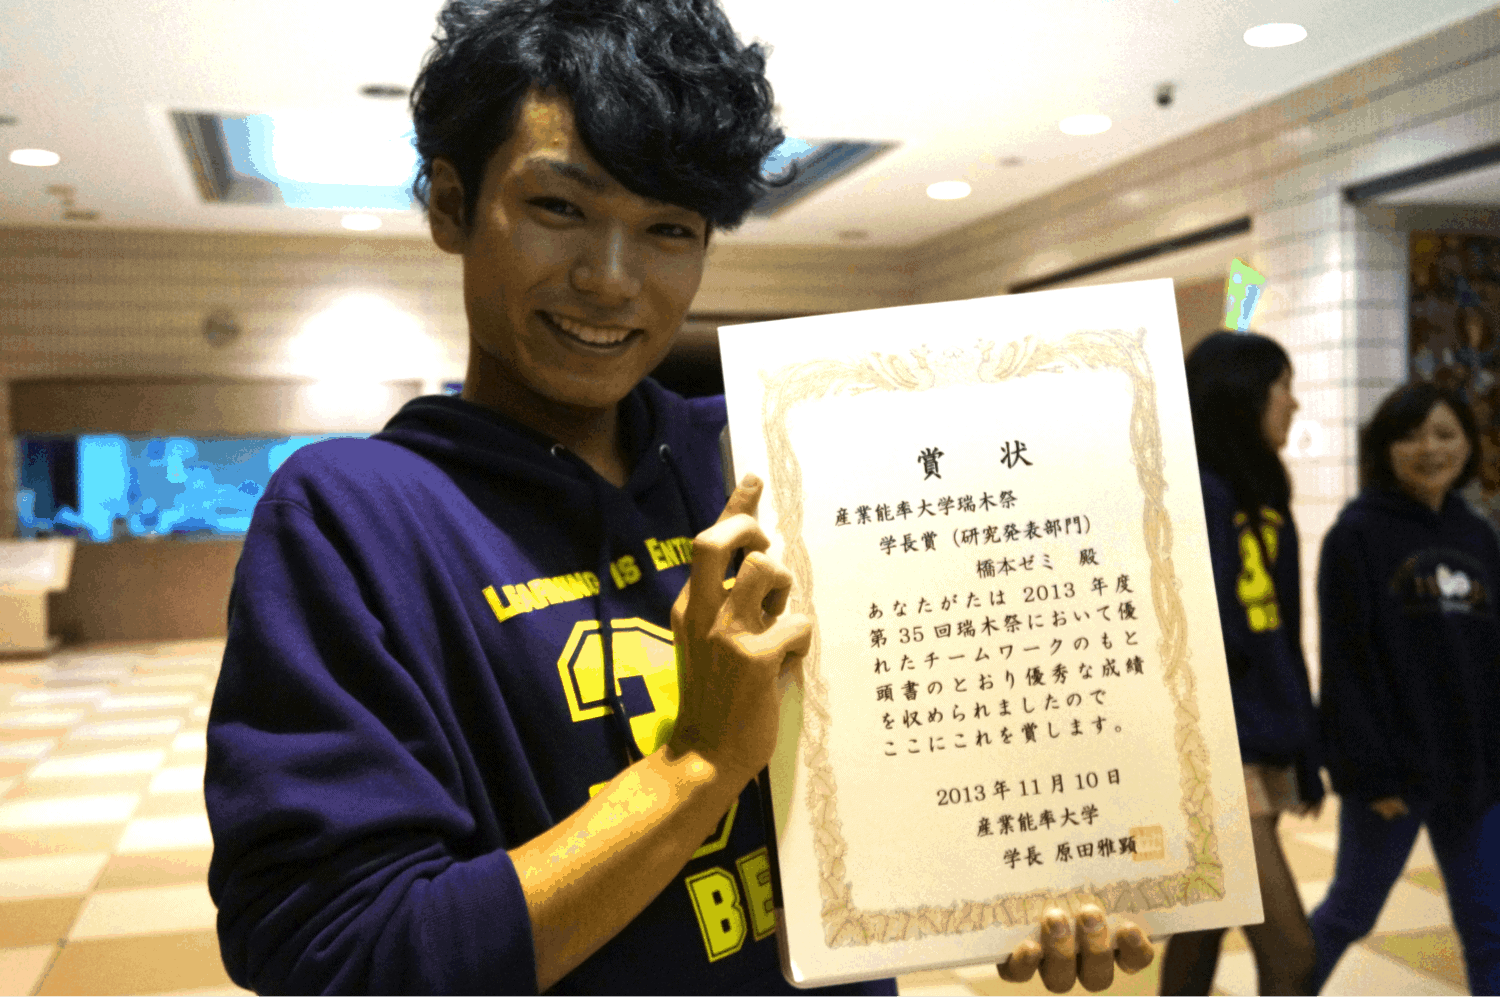 賞 状
産業能率大学瑞木祭
学長賞（研究発表部門）
橋本ゼミ 殿
あなたがたは 2013 年度
第 35 回瑞木祭において優
れたチームワークのもと
頭書のとおり優秀な成績
を収められましたので
ここにこれを賞します。
2013 年 11 月 10 日
産業能率大学
学長 原田雅顕
LEARNING IS
BE